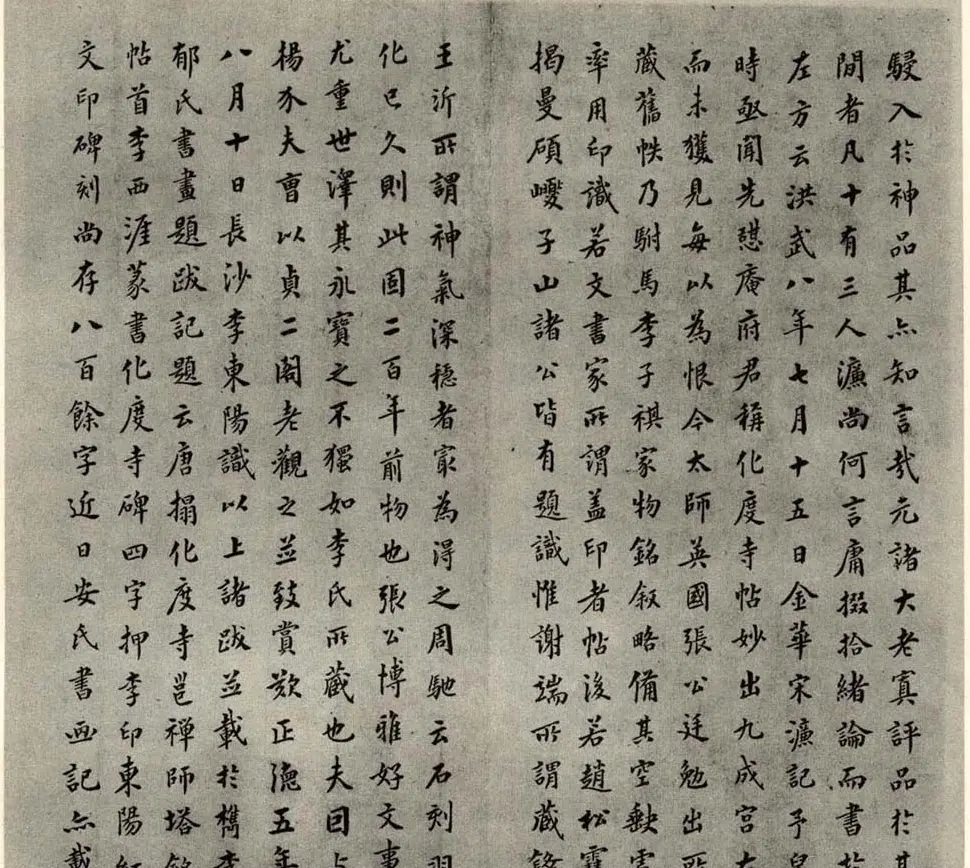 駸入於神品其亦知言哉元諸大老寘評品於其
間者凡十有三人濂尚何言庸掇拾緒論而書於
左方云洪武八年七月十五日金華宋濂記予兒
時亟聞先憩庵府君稱化度寺帖妙出九成宮
而未獲見每以為恨今太師英國張公廷勉出所
藏舊帙乃駙馬李子祺家物銘叙略備其空缺
率用印識若文書家所謂蓋印者帖後若趙松雪
揭曼碩巙子山諸公皆有題識惟謝端所謂藏鋒
王沂所謂神氣深穩者㝡為得之周馳云石刻羽
化已久則此固二百年前物也張公博雅好文事
尤重世澤其永寶之不獨如李氏所藏也夫因
楊介夫曺以貞二閣老觀之並致賞歎正德五年
八月十日長沙李東陽識以上諸跋並載於檇李
郁氏書畫題跋記題云唐搨化度寺邕禅師塔銘
帖首李西涯篆書化度寺碑四字押李印東陽
文印碑刻尚存八百餘字近日安氏書画記亦載